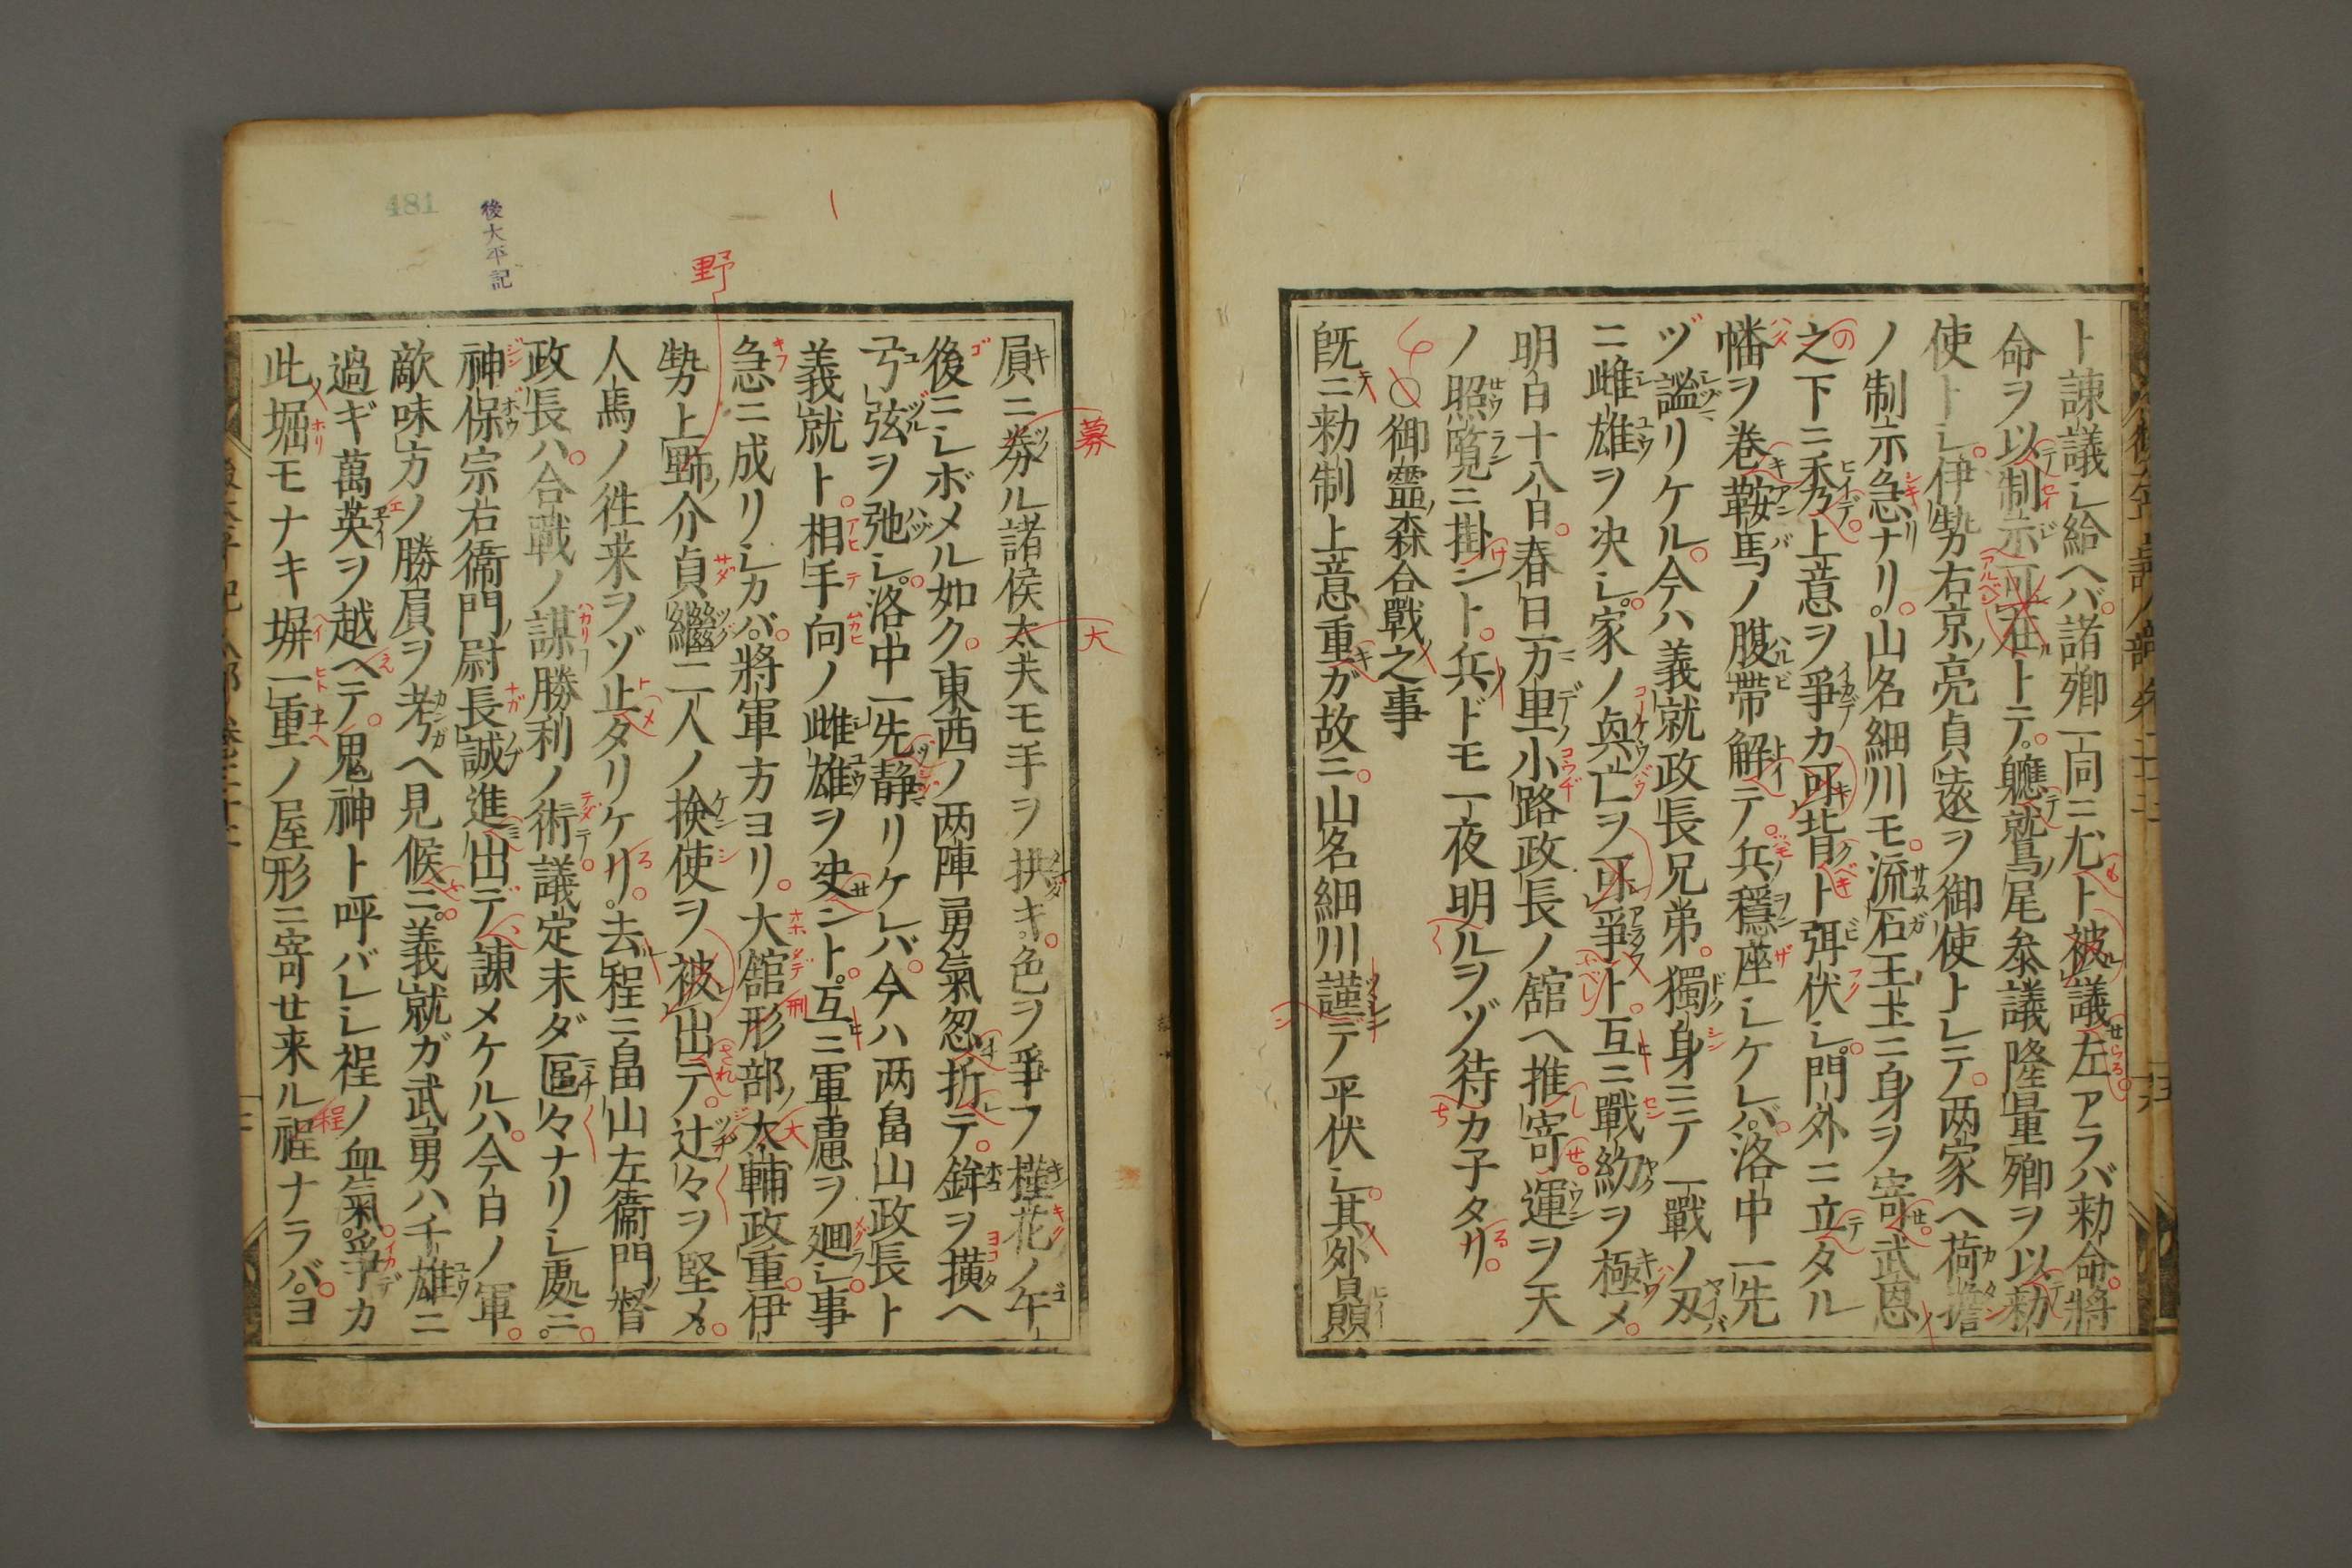 ト諌議シ給ヘバ諸卿一同ニ尤ト被議左アラバ勅命將
命ヲ以制示可在トテ軈鷲尾参議隆量卿ヲ以勅
使トシ伊勢右京亮貞遠ヲ御使トシテ両家ヘ荷擔
ノ制示急ナリ山名細川モ流石王土ニ身ヲ寄武恩
之下ニ禿乃上意ヲ爭カ可背ト弭伏シ門外ニ立タル
幡ヲ巻鞍馬ノ腹帯解テ兵穏座シケレバ洛中一先
ヅ謐リケル今ハ義就政長兄弟獨身ニテ一戰ノ刄
ニ雌雄ヲ决シ家ノ興亡ヲ可爭ト互ニ戰約ヲ極メ
明白十八日春日万里小路政長ノ舘ヘ推寄運ヲ天
ノ照覧ニ掛ント兵ドモ一夜明ルヲゾ待カ子タリ
御靈森合戰之事
既ニ勅制上意重ガ故ニ山名細川謹デ平伏シ其外贔
屓ニ募ル諸侯太夫モ手ヲ拱キ色ヲ爭フ槿花ノ午
後ニシボメル如ク東西ノ両陣勇氣忽折テ鉾ヲ横ヘ
弓弦ヲ弛シ洛中一先静リケレバ今ハ两畠山政長ト
義就ト相手向ノ雌雄ヲ决セント互ニ軍慮ヲ廻シ事
急ニ成リシカバ將軍方ヨリ大舘形部太輔政重伊
勢上野介貞繼二人ノ検使ヲ被出テ辻々ヲ堅メ
人馬ノ徃来ヲゾ止タリケリ去程ニ畠山左衞門督
政長ハ合戰ノ謀勝利ノ術議定未ダ區々ナリシ處ニ
神保宗右衞門尉長誠進出デ諌メケルハ今日ノ軍
敵味方ノ勝屓ヲ考ヘ見候ニ義就ガ武勇ハ千雄ニ
過ギ萬英ヲ越ヘテ鬼神ト呼バレシ程ノ血氣爭カ
此堀モナキ塀一重ノ屋形ニ寄セ来ル程ナラバヨ
野
募
大
後太平記
481